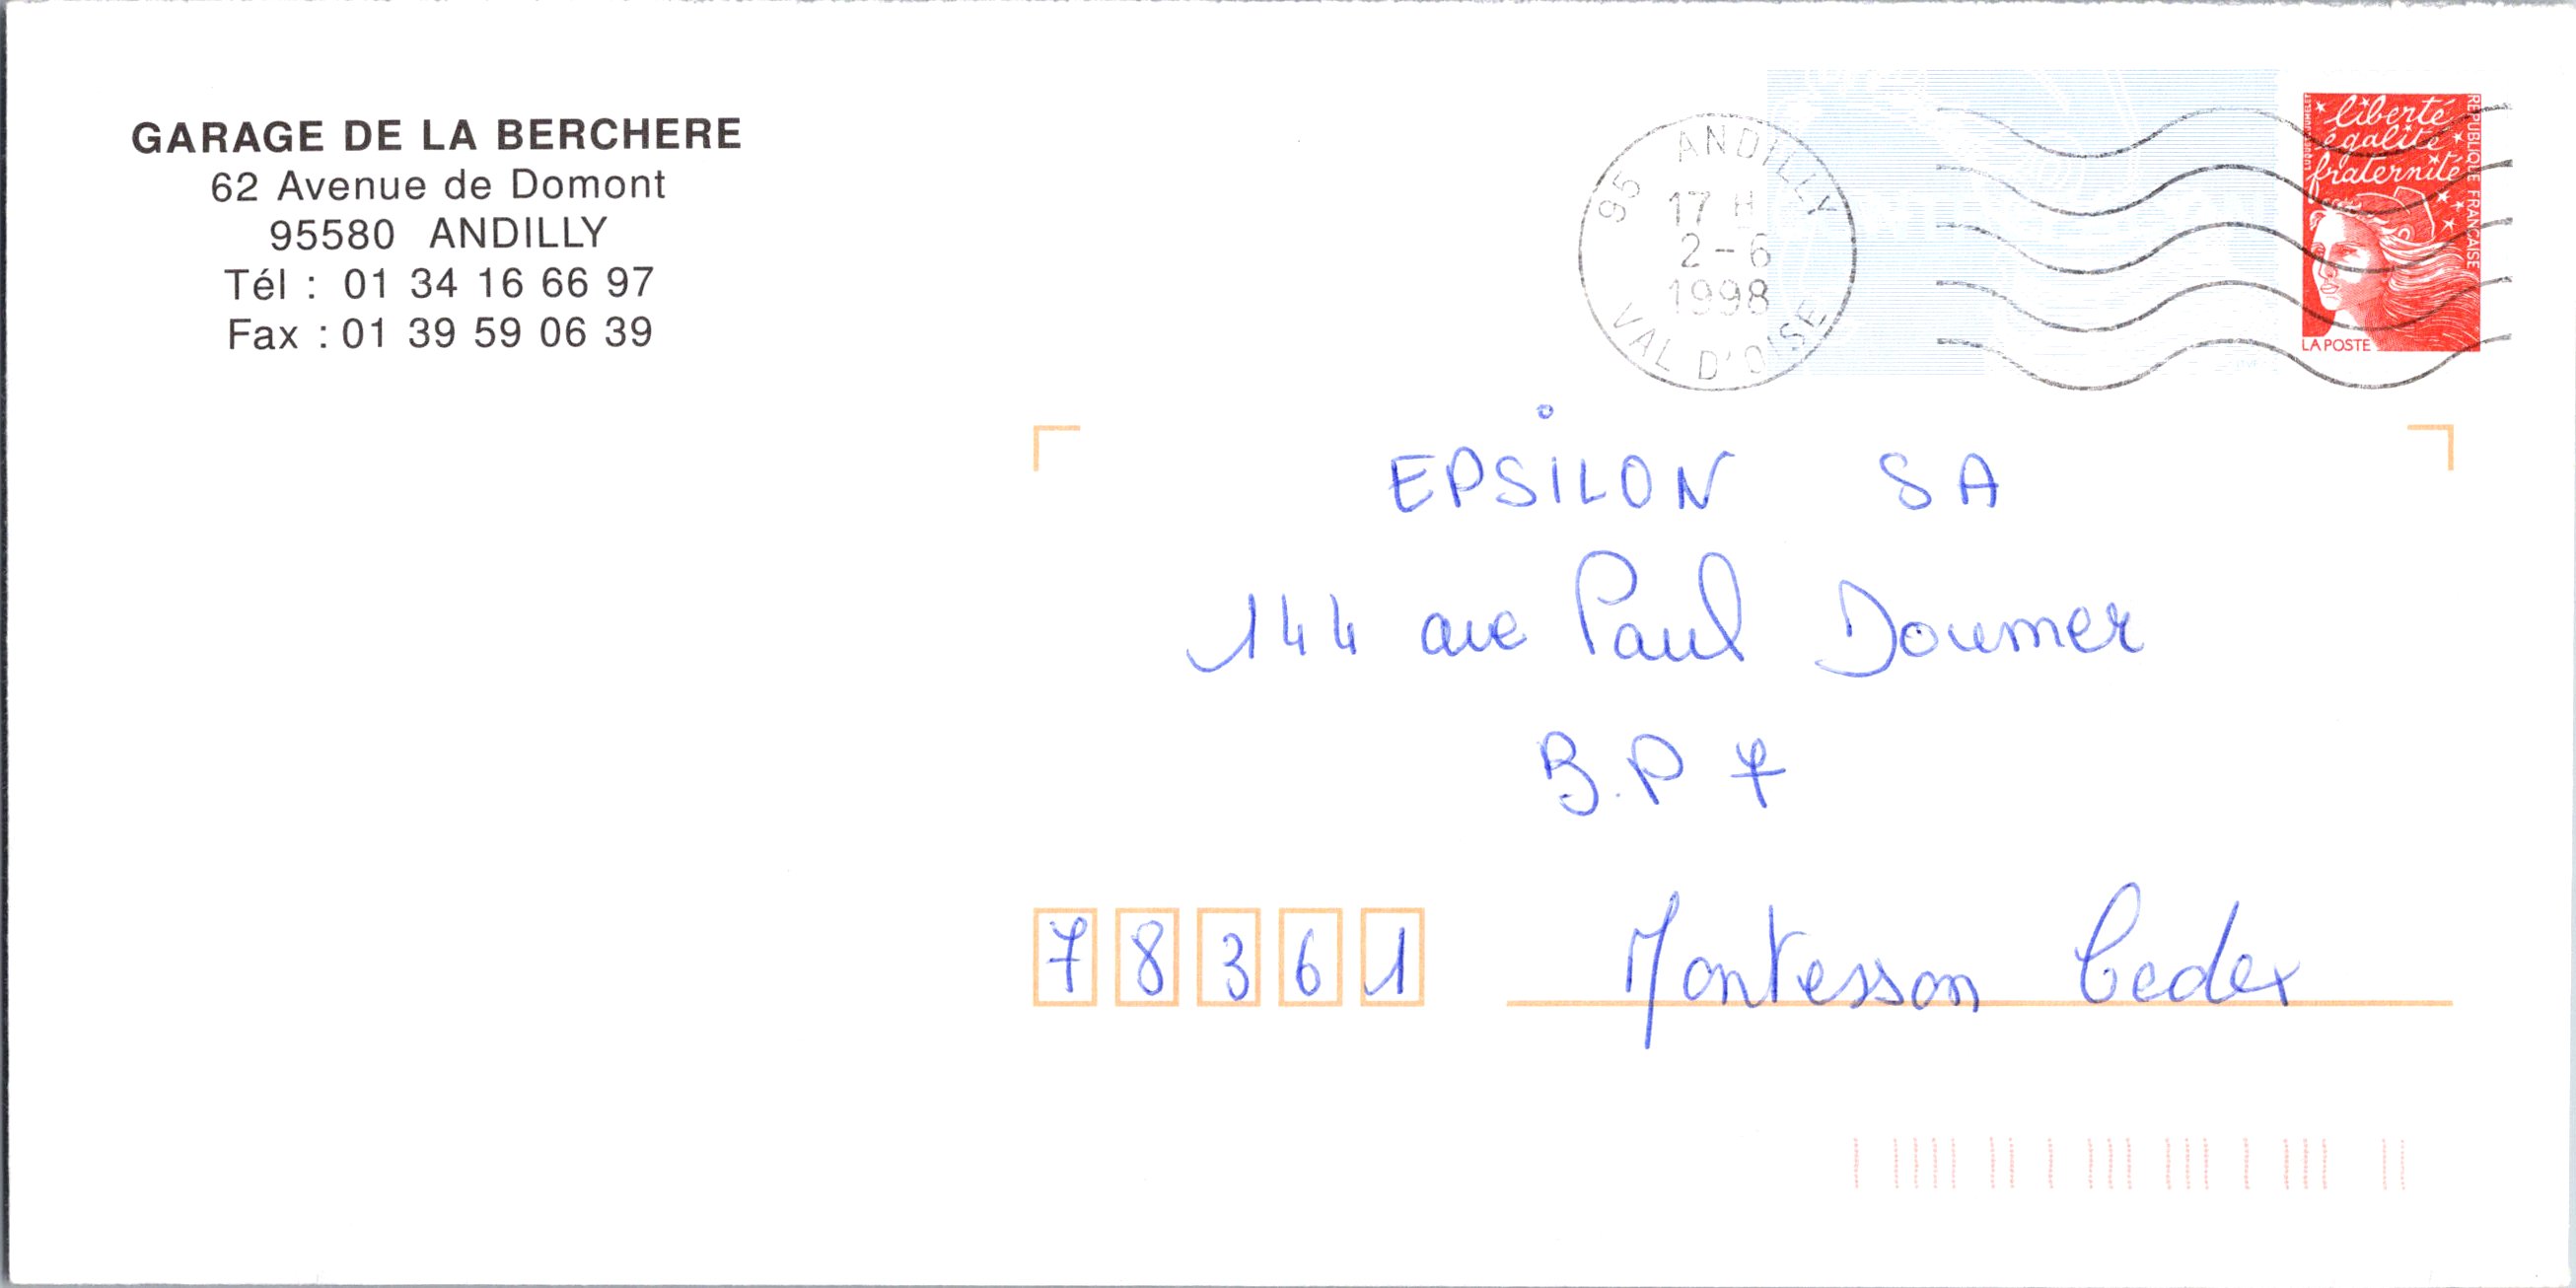 GARAGE DE LA BERCHERE
62 Avenue de Domont
95580 ANDILLY
Tél : 01 34 16 66 97
Fax : 01 39 59 06 39
95 ANDILLY
17 H
2 - 6
1998
VAL D'OISE
liberté
égalité
fraternité
REPUBLIQUE FRANÇAISE
LA POSTE
EPSILON SA
144 ave Paul Doumer
B.P 7
78361 Montesson Cedex